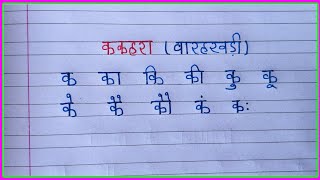 ककहरा (वारहखड़ी)
क का कि की कु कू
के कै कौ कं कः